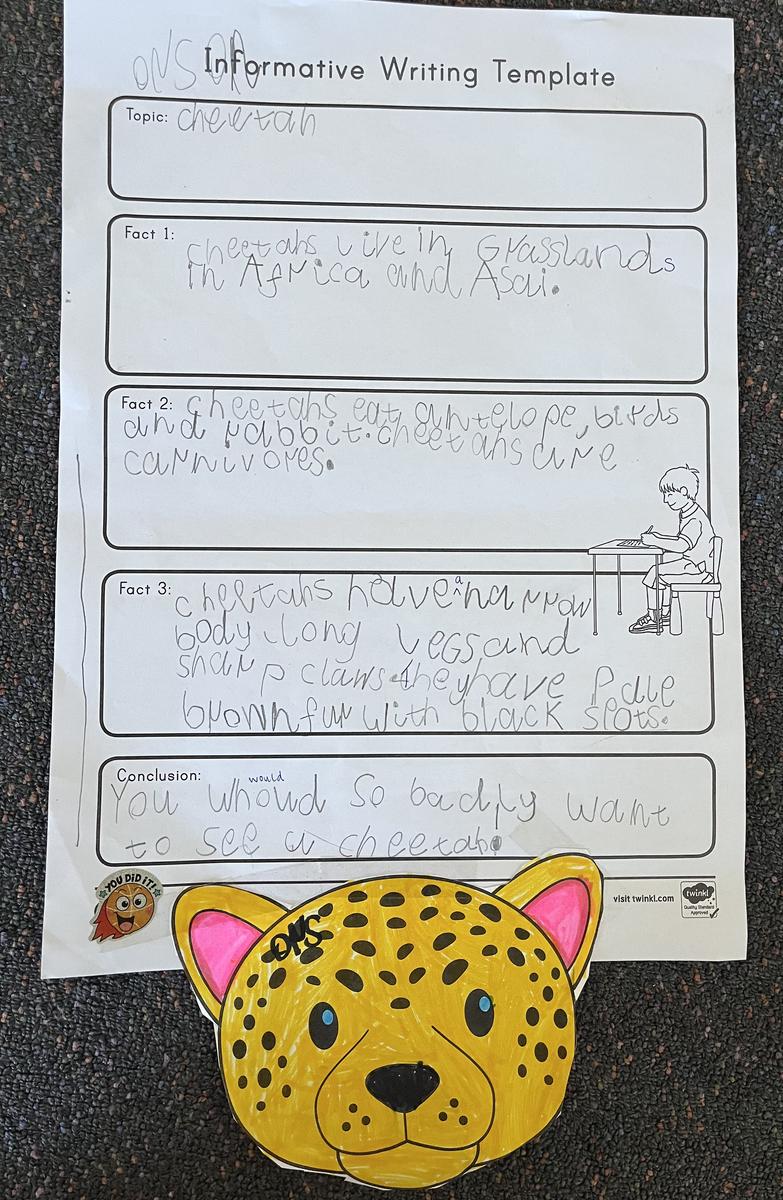 ONS ON
Informative Writing Template
Topic: cheetah
Fact 1: cheetahs live in Grasslands
in Africa and Asai.
Fact 2: cheetahs eat antelope, birds
and rabbit. cheetahs are
carnivores.
Fact 3: cheetahs have a narrow
body long legs and
sharp claws. they have Pale
brown fur with black spots.
Conclusion: would
You whoud so badly want
to see a cheetah.
YOU DID IT!
visit twinkl.com
twinkl
Quality Standard
Approved
ONS